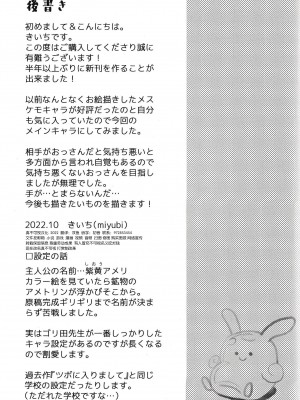 後書き
初めまして＆こんにちは。
きいちです。
この度はご購入してくださり誠に
有難うございます！
半年以上ぶりに新刊を作ることが
出来ました！
以前なんとなくお絵描きしたメス
ケモキャラが好評だったのと自分
も気に入っていたので今回の
メインキャラにしてみました。
相手がおっさんだと気持ち悪いと
多方面から言われ自覚もあるので
気持ち悪くないおっさんを目指し
ましたが無理でした。
手が…とまらないんだ…
今後も描きたいものを描きます！
2022.10 きいち(miyubi)
□設定の話
主人公の名前…紫黄アメリ
しおう
カラー絵を見ていたら鉱物の
アメトリンが浮かびそこから。
原稿完成ギリギリまで名前が決ま
らず苦戦しました。
実はゴリ田先生が一番しっかりした
キャラ設定があるのですが長くなる
ので割愛します。
過去作『ツボに入りまして』と同じ
学校の設定だったりします。
(ただれた学校ですな…)